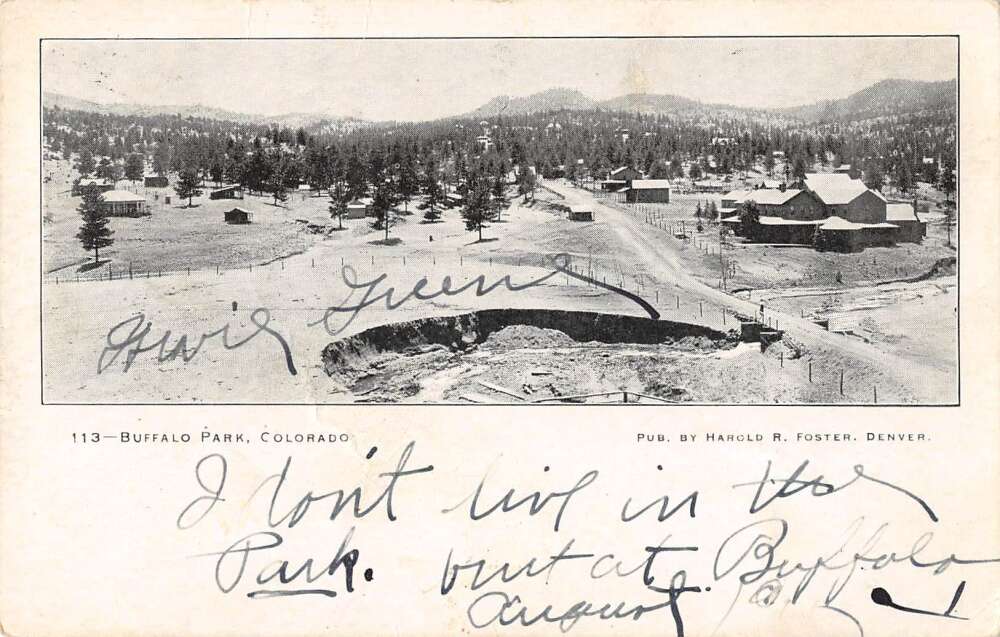 Hurl Green
113—BUFFALO PARK, COLORADO
PUB. BY HAROLD R. FOSTER. DENVER.
I don't live in the
Park. but at Buffalo